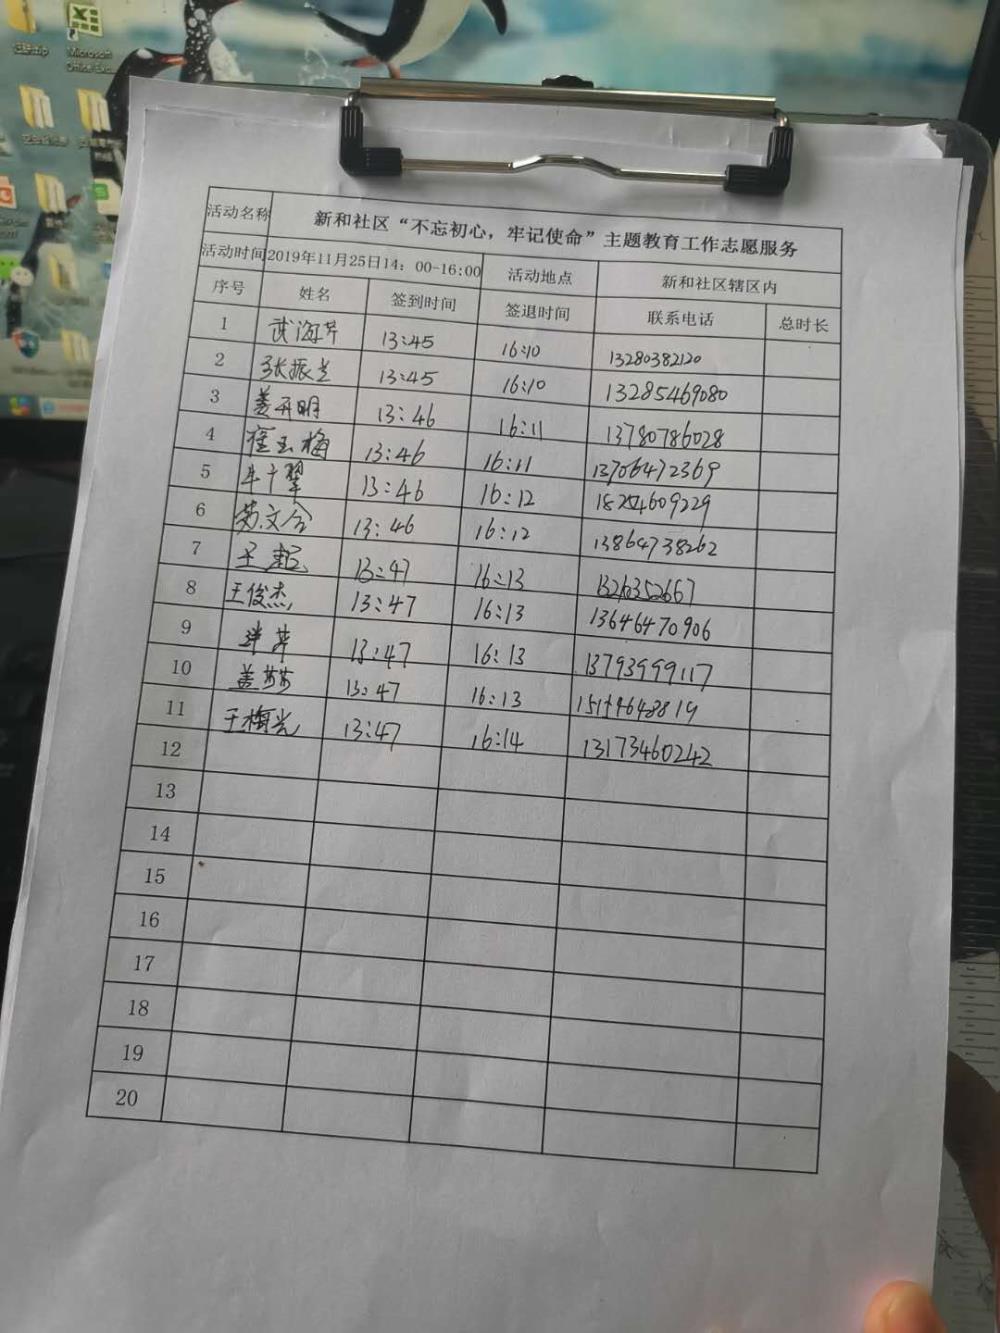 Microsoft
Office Exc...
活动名称 新和社区“不忘初心，牢记使命”主题教育工作志愿服务
活动时间 2019年11月25日14：00-16:00 活动地点 新和社区辖区内
序号 姓名 签到时间 签退时间 联系电话 总时长
1 武海芹 13:45 16:10 13280382120
2 张振兰 13:45 16:10 13285469080
3 姜开明 13:46 16:11 13780786028
4 崔玉梅 13:46 16:11 13706472369
5 13:46 16:12
6 13:46 16:12 13864738262
7 13:47 16:13 13210352667
8 王俊杰 13:47 16:13 13646470906
9 13:47 16:13 13793999117
10 盖莎莎 13:47 16:13
11 王梅光 13:47 16:14 13173460242
12
13
14
15
16
17
18
19
20